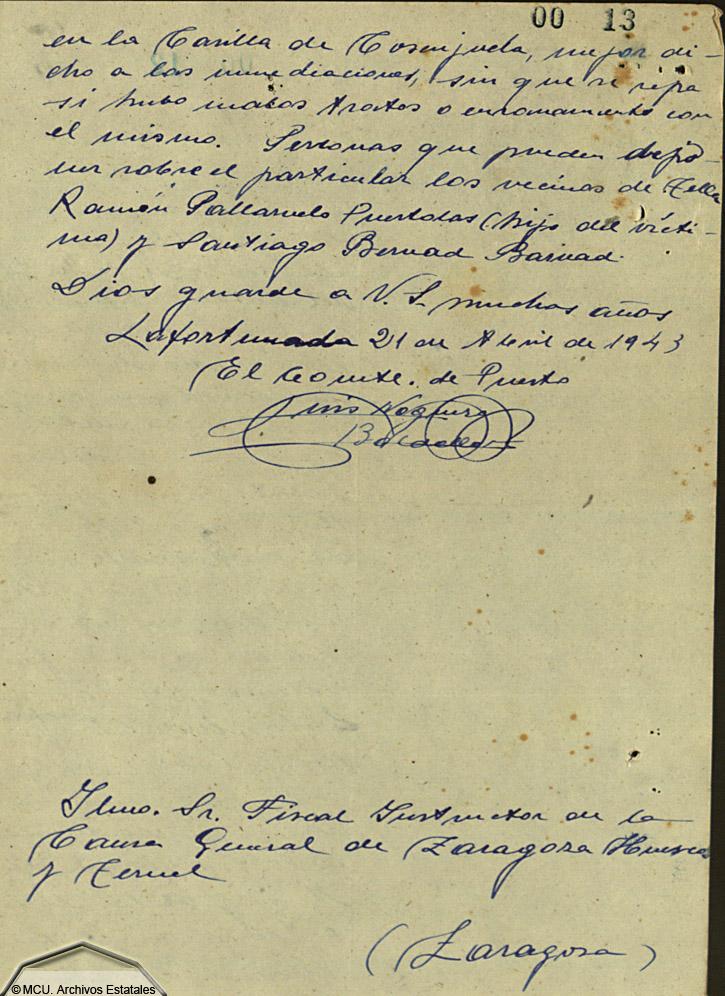 00 13
en la Casilla de Coscujuela, mejor di-
cho a las inmediaciones, sin que se sepa
si hubo malos tratos o ensañamiento con
el mismo. Personas que pueden depo-
ner sobre el particular los vecinos de Tella
Ramón Pallaruelo Puertolas (hijo del victi-
ma) y Santiago Bernad Bernad.
Dios guarde a V.S. muchos años
Lafortunada 21 de Abril de 1943
El Comte. de Puesto
Luis Noguero
Ilmo. Sr. Fiscal Instructor de la
Causa General de Zaragoza Huesca
y Teruel
(Zaragoza)
© MCU. Archivos Estatales